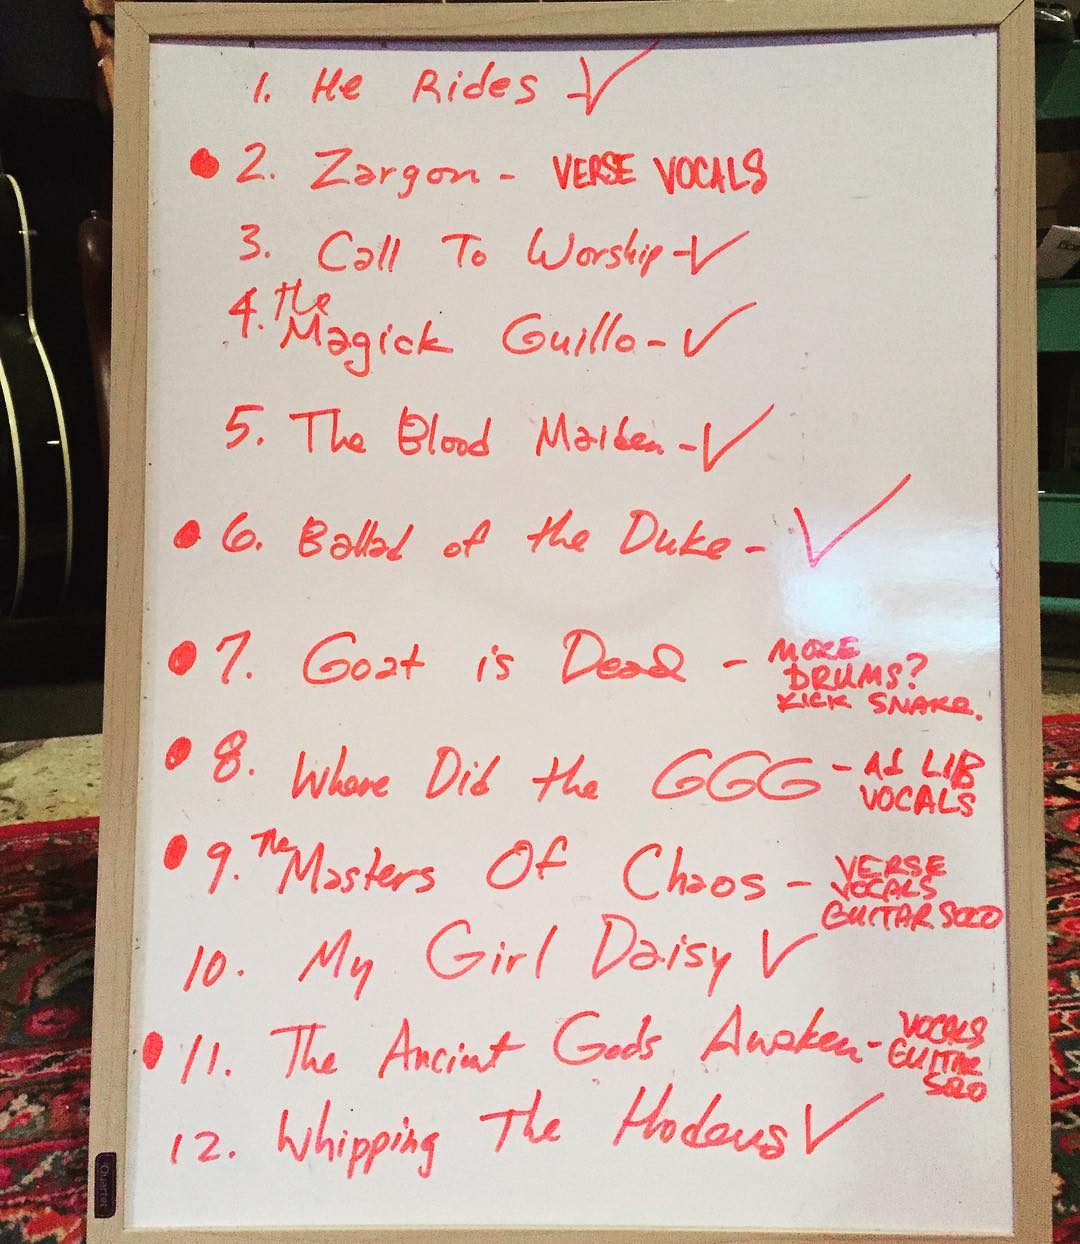 1. He Rides - ✓
● 2. Zargon - VERSE VOCALS
3. Call To Worship - ✓
4. The Magick Guillo - ✓
5. The Blood Maiden - ✓
● 6. Ballad of the Duke - ✓
● 7. Goat is Dead - MORE
DRUMS?
KICK SNARE.
● 8. Where Did the GGG - Ad LIB
VOCALS
● 9. The Masters Of Chaos - VERSE
VOCALS
GUITAR SOLO
10. My Girl Daisy ✓
● 11. The Ancient Gods Awaken - VOCALS
GUITAR
SOLO
12. Whipping The Hodeus ✓
Quartet